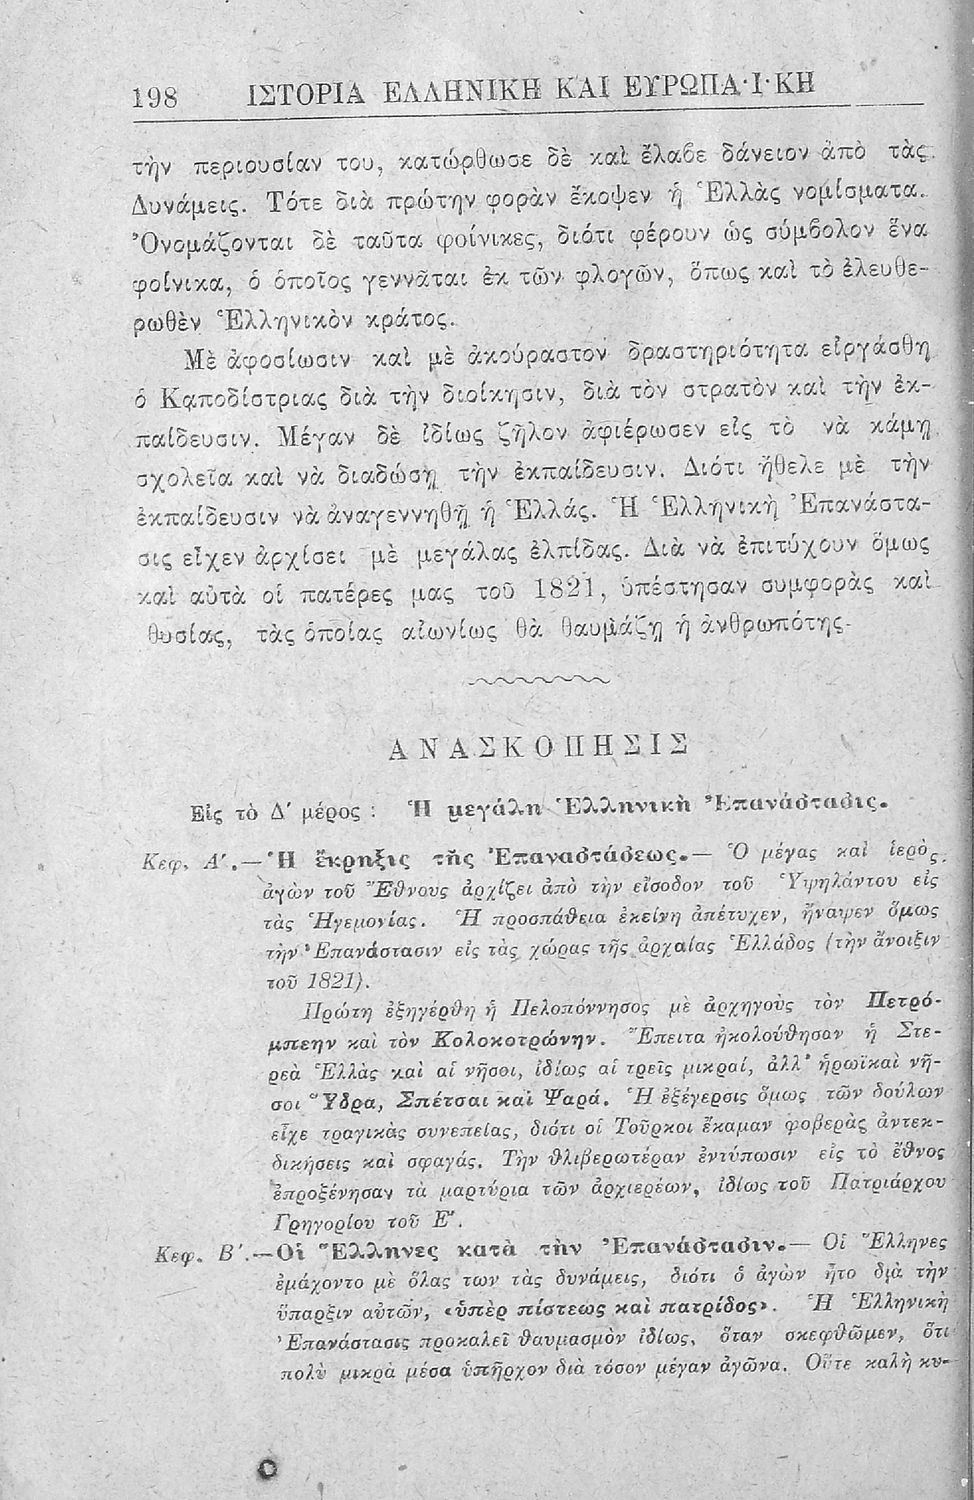 198 ΙΣΤΟΡΙΑ ΕΛΛΗΝΙΚΗ ΚΑΙ ΕΥΡΩΠΑ·Ι·ΚΗ
τὴν περιουσίαν του, κατώρθωσε δὲ καὶ ἔλαβε δάνειον ἀπὸ τὰς
Δυνάμεις. Τότε διὰ πρώτην φορὰν ἔκοψεν ἡ Ἑλλὰς νομίσματα.
Ὀνομάζονται δὲ ταῦτα φοίνικες, διότι φέρουν ὡς σύμβολον ἕνα
φοίνικα, ὁ ὁποῖος γεννᾶται ἐκ τῶν φλογῶν, ὅπως καὶ τὸ ἐλευθε-
ρωθὲν Ἑλληνικὸν κράτος.
Μὲ ἀφοσίωσιν καὶ μὲ ἀκούραστον δραστηριότητα εἰργάσθη
ὁ Καποδίστριας διὰ τὴν διοίκησιν, διὰ τὸν στρατὸν καὶ τὴν ἐκ-
παίδευσιν. Μέγαν δὲ ἰδίως ζῆλον ἀφιέρωσεν εἰς τὸ νὰ κάμῃ
σχολεῖα καὶ νὰ διαδώσῃ τὴν ἐκπαίδευσιν. Διότι ἤθελε μὲ τὴν
ἐκπαίδευσιν νὰ ἀναγεννηθῇ ἡ Ἑλλάς. Ἡ Ἑλληνικὴ Ἐπανάστα-
σις εἶχεν ἀρχίσει μὲ μεγάλας ἐλπίδας. Διὰ νὰ ἐπιτύχουν ὅμως
καὶ αὐτὰ οἱ πατέρες μας τοῦ 1821, ὑπέστησαν συμφορὰς καὶ
θυσίας, τὰς ὁποίας αἰωνίως θὰ θαυμάζῃ ἡ ἀνθρωπότης.
ΑΝΑΣΚΟΠΗΣΙΣ
Εἰς τὸ Δ′ μέρος : Ἡ μεγάλη Ἑλληνικὴ Ἐπανάστασις.
Κεφ. Α′.—Ἡ ἔκρηξις τῆς Ἐπαναστάσεως.— Ὁ μέγας καὶ ἱερὸς
ἀγὼν τοῦ Ἔθνους ἀρχίζει ἀπὸ τὴν εἴσοδον τοῦ Ὑψηλάντου εἰς
τὰς Ἡγεμονίας. Ἡ προσπάθεια ἐκείνη ἀπέτυχεν, ἤναψεν ὅμως
τὴν Ἐπανάστασιν εἰς τὰς χώρας τῆς ἀρχαίας Ἑλλάδος (τὴν ἄνοιξιν
τοῦ 1821).
Πρώτη ἐξηγέρθη ἡ Πελοπόννησος μὲ ἀρχηγοὺς τὸν Πετρό-
μπεην καὶ τὸν Κολοκοτρώνην. Ἔπειτα ἠκολούθησαν ἡ Στε-
ρεὰ Ἑλλὰς καὶ αἱ νῆσοι, ἰδίως αἱ τρεῖς μικραί, ἀλλ' ἡρωϊκαὶ νῆ-
σοι Ὕδρα, Σπέτσαι καὶ Ψαρά. Ἡ ἐξέγερσις ὅμως τῶν δούλων
εἶχε τραγικὰς συνεπείας, διότι οἱ Τοῦρκοι ἔκαμαν φοβερὰς ἀντεκ-
δικήσεις καὶ σφαγάς. Τὴν θλιβερωτέραν ἐντύπωσιν εἰς τὸ ἔθνος
ἐπροξένησαν τὰ μαρτύρια τῶν ἀρχιερέων, ἰδίως τοῦ Πατριάρχου
Γρηγορίου τοῦ Ε′.
Κεφ. Β′.—Οἱ Ἕλληνες κατὰ τὴν Ἐπανάστασιν.— Οἱ Ἕλληνες
ἐμάχοντο μὲ ὅλας των τὰς δυνάμεις, διότι ὁ ἀγὼν ἦτο διὰ τὴν
ὕπαρξιν αὐτῶν, «ὑπὲρ πίστεως καὶ πατρίδος». Ἡ Ἑλληνικὴ
Ἐπανάστασις προκαλεῖ θαυμασμὸν ἰδίως, ὅταν σκεφθῶμεν, ὅτι
πολὺ μικρὰ μέσα ὑπῆρχον διὰ τόσον μέγαν ἀγῶνα. Οὔτε καλὴ κυ-